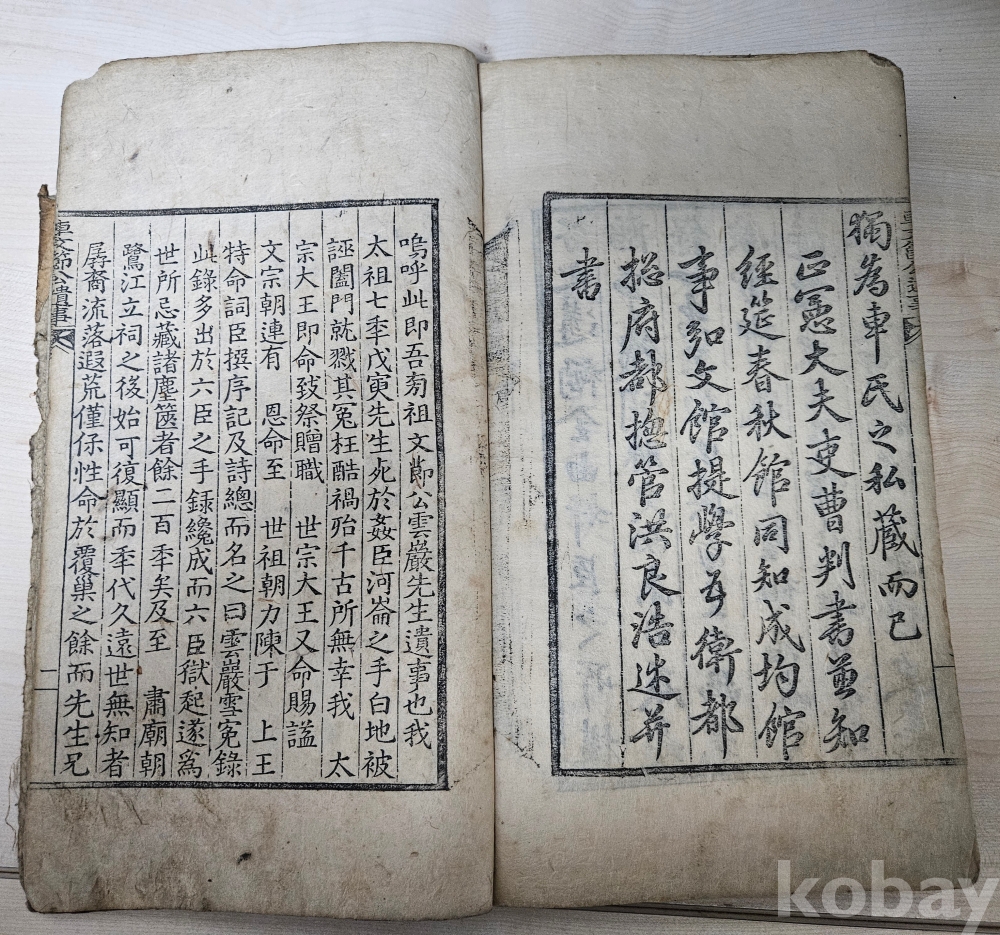 獨為車氏之私蔵而已
正憲大夫吏曹判書兼知
經筵春秋館同知成均館
事弘文館提學五衛都
摠府都摠管洪良浩述并
書
嗚呼此即吾旁祖文節公雲巖先生遺事也我
太祖七季戊寅先生死於姦臣河崙之手白地被
誣闔門就戮其冤枉酷禍殆千古所無幸我 太
宗大王即命致祭贈職 世宗大王又命賜謚
文宗朝連有 恩命至 世祖朝力陳于 上王
特命詞臣撰序記及詩總而名之曰雲巖雪冤錄
此錄多出於六臣之手錄纔成而六臣獄起遂爲
世所忌藏諸塵篋者餘二百季矣及至 肅廟朝
鷺江立祠之後始可復顯而季代久遠世無知者
孱裔流落遐荒僅保性命於覆巢之餘而先生兄
車文節公遺事
kobay